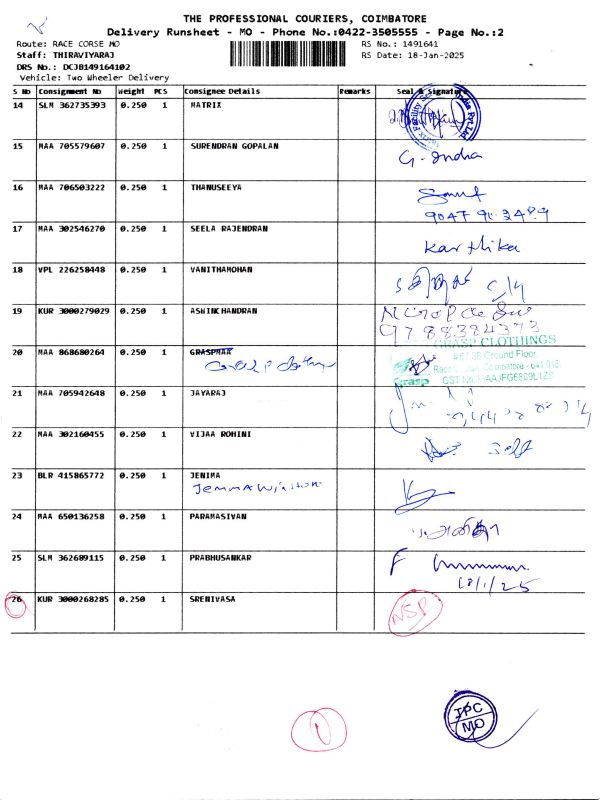 THE PROFESSIONAL COURIERS, COIMBATORE
Delivery Runsheet - MO - Phone No.:0422-3505555 - Page No.:2
Route: RACE CORSE MO
RS No.: 1491641
Staff: THIRAVIYARAJ
RS Date: 18-Jan-2025
DRS No.: DCJB149164102
Vehicle: Two Wheeler Delivery
S No Consignment No Weight PCS Consignee Details Remarks Seal & Signature
14 SLM 362735393 0.250 1 MATRIX
15 MAA 705579607 0.250 1 SURENDRAN GOPALAN G. Indra
16 MAA 706503222 0.250 1 THANUSEEYA
17 MAA 302546270 0.250 1 SEELA RAJENDRAN Karthika
18 VPL 226258448 0.250 1 VANITHAMOHAN
19 KUR 3000279029 0.250 1 ASHINCHANDRAN
9788384373
20 MAA 868680264 0.250 1 GRASPHAA
GRASP CLOTHINGS
Ground Floor,
Coimbatore - 641 018
Grasp
21 MAA 705942648 0.250 1 JAYARAJ
22 MAA 302160455 0.250 1 VIJAA ROHINI Self
23 BLR 415865772 0.250 1 JENIMA
24 MAA 650136258 0.250 1 PARAMASIVAN
25 SLM 362689115 0.250 1 PRABHUSANKAR
18/1/25
26 KUR 3000268285 0.250 1 SRENIVASA NSP
1
TPC
MO